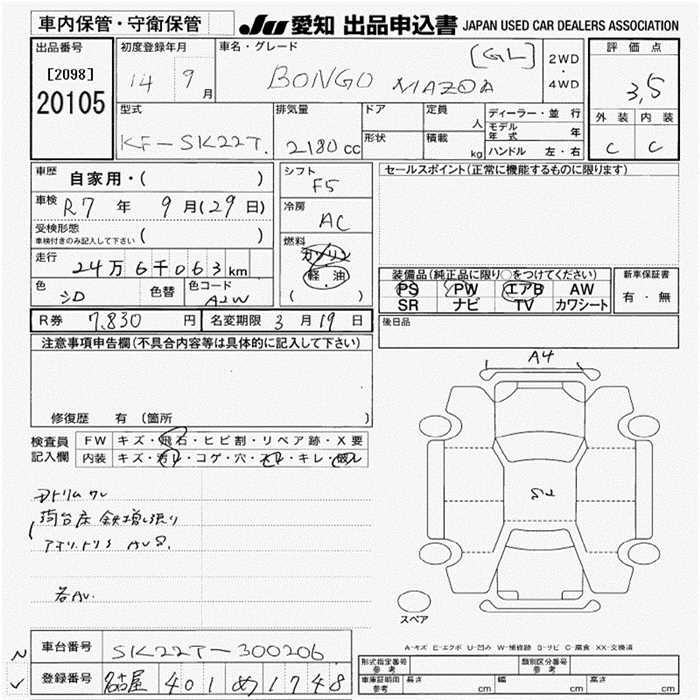 車内保管・守衛保管 JU 愛知 出品申込書 JAPAN USED CAR DEALERS ASSOCIATION
出品番号 [2098] 20105
初度登録年月 14 9月
車名・グレード BONGO MAZDA (GL)
2WD・4WD
評価点 3,5
外装 内装
C C
型式 KF-SK22T.
排気量 2180cc
ドア 形状
定員 人 積載 kg
ディーラー・並行
モデル年式 年
ハンドル 左・右
車歴 自家用・( )
車検 R7年 9月(29日)
受検形態 車検付きのみ記入して下さい ( )
走行 24万6千063km
色 シロ 色替 色コード A2W
シフト F5
冷房 AC
燃料 ガソリン 軽・油 ( )
セールスポイント(正常に機能するものに限ります)
装備品(純正品に限り○をつけてください)
PS PW エアB AW
SR ナビ TV カワシート
新車保証書 有・無
後日品
R券 7,830円 名変期限 3月19日
注意事項申告欄(不具合内容等は具体的に記入して下さい)
修復歴 有(箇所
検査員記入欄
FW キズ・飛石・ヒビ割・リペア跡・X要
内装 キズ・汚レ・コゲ・穴・スレ・キレ・破レ
A4
スペア
A-キズ E-エクボ U-凹み W-補修跡 S-サビ C-腐食 XX-交換済
車台番号 SK22T-300206
登録番号 名古屋 401 め 1748
型式指定番号 参考
類別区分番号 参考
車庫証明用 参考 長さ cm 幅 cm 高さ cm